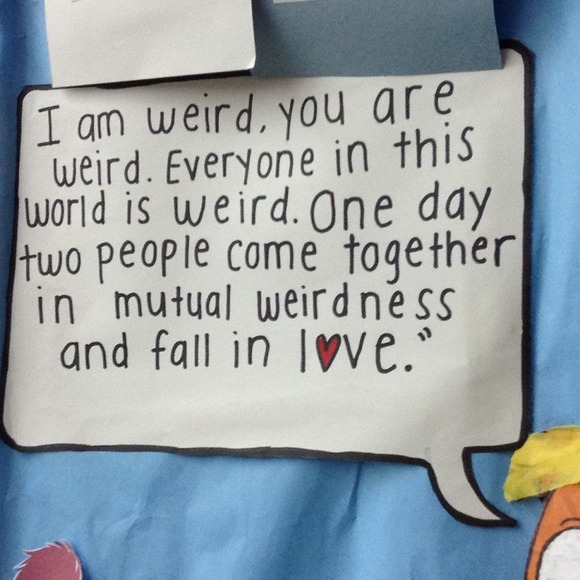 I am weird, you are
weird. Everyone in this
world is weird. One day
two people come together
in mutual weirdness
and fall in love."